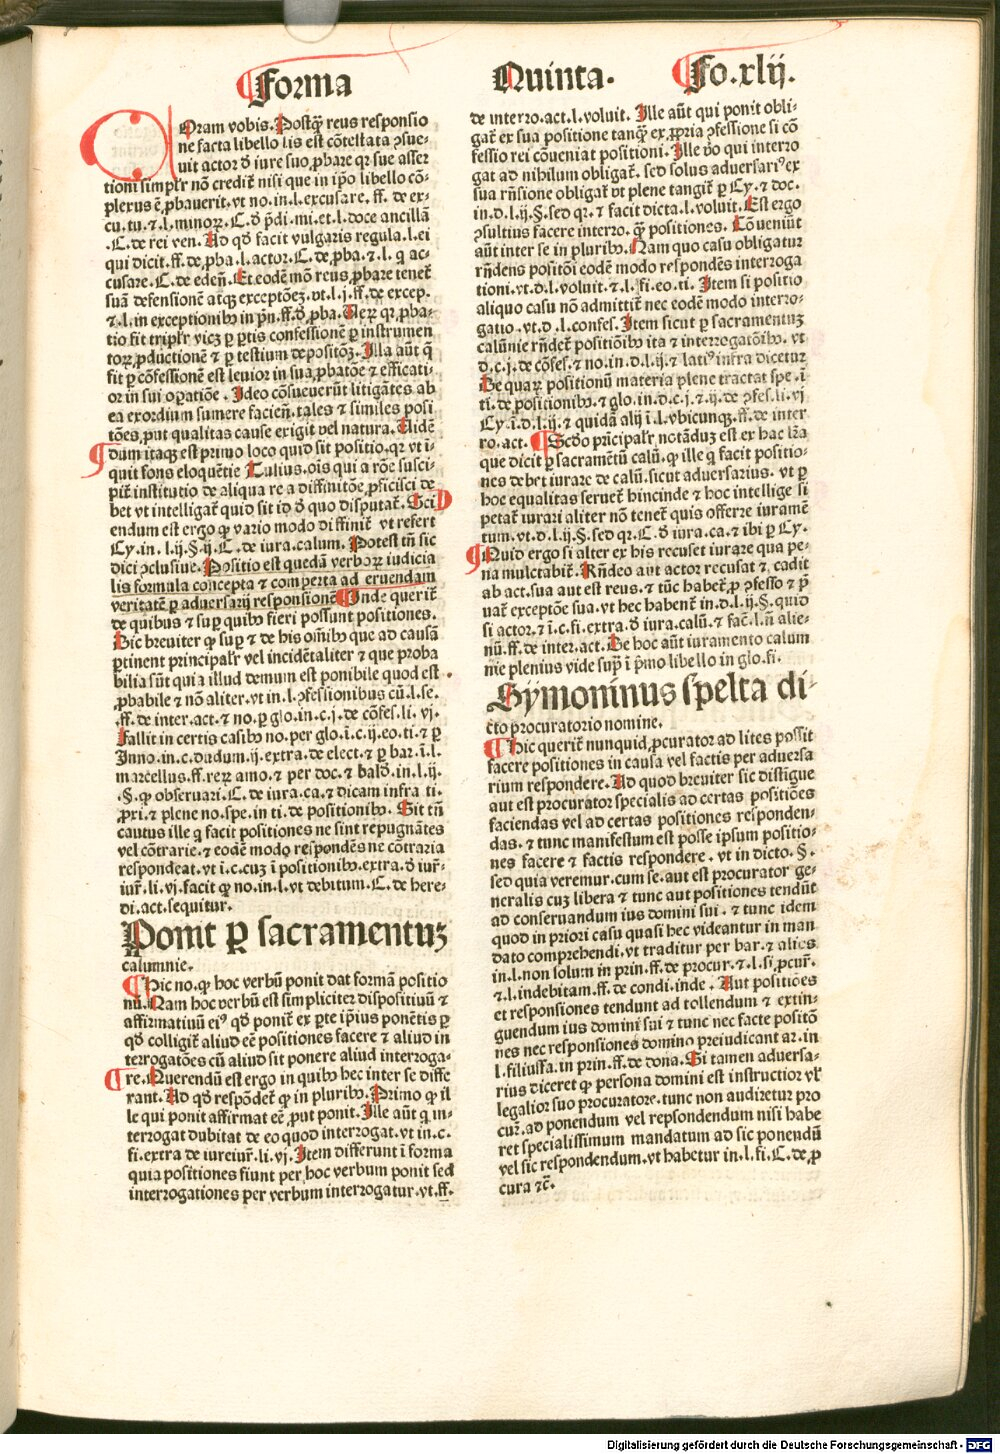 Forma Quinta. Fo.xlij.
COram vobis. Postq̃ reus responsio
ne facta libello lis est cõtestata ꝯsue-
uit actor ð iure suo ꝓbare qr sue asser
tioni simpl'r nõ credit̃ nisi que in ip̃o libello cõ-
plexus ẽ ꝓbauerit. vt no. in. l. excusare. ff. de ex-
cu. tu. ⁊ l. minoꝝ. C. ð p̃di. mi. et. l. doce ancillã
.C. de rei ven. Ad qð facit vulgaris regula. l. ei
qui dicit. ff. de ꝓba. l. actor. C. de ꝓba. ⁊. l. q ac-
cusare. C. de eden̄. Et eodẽ mõ reus ꝓbare tenet̃
suã defensionẽ atqꝫ exceptõeꝫ. vt. l. j. ff. de excep.
⁊. l. in exceptionibꝰ in p̃n. ff. ð ꝓba. Aeꝝ qꝛ ꝓba-
tio fit tripl'r vicꝫ ꝑ ꝑtis confessionẽ ꝑ instrumen
toꝝ ꝓductionẽ ⁊ ꝑ testium depositõꝫ. Illa aũt q̃
fit ꝑ cõfessionẽ est leuior in sua ꝓbatõe ⁊ efficati-
or in sui oꝑatiõe. Ideo cõsueuerũt litigãtes ab
ea exordium sumere facien̄. tales ⁊ similes posi
tões, put qualitas cause exigit vel natura. Uidẽ
dum itaqꝫ est primo loco quid sit positio. qꝛ vt i-
quit fons eloquẽtie Tulius. oĩs qui a rõe susci-
pit̃ institutio de aliqua re a diffinitõe ꝓficisci de
bet vt intelligat̃ quid sit id ð quo disputat̃. Sci
endum est ergo ꝙ vario modo diffinit̃ vt refert
Cy. in. l. ij. §. ij. C. de iura. calum. Potest tñ sic
dici ꝯclusiue. Positio est quedã verboꝝ iudicia
lis formula concepta ⁊ comperta ad eruendam
veritatẽ ꝑ aduersarij responsionẽ Unde querit̃
de quibus ⁊ suꝑ quibꝰ fieri possunt positiones.
Dic breuiter ꝙ suꝑ ⁊ de his om̃ibꝰ que ad causã
ꝑtinent principal'r vel incidẽtaliter ⁊ que proba
bilia sũt quia illud demum est ponibile quod est
ꝓbabile ⁊ nõ aliter. vt in. l. ꝯfessionibus cũ. l. se.
.ff. de inter. act. ⁊ no. ꝑ glo. in. c. j. de cõfes. li. vj.
Fallit in certis casibꝰ no. per glo. i. c. ij. eo. ti. ⁊ ꝑ
Inno. in. c. dudum. ij. extra. de elect. ⁊ ꝑ bar. i. l.
marcellus. ff. reꝝ amo. ⁊ per doc. ⁊ bald. in. l. ij.
.§. ꝙ obseruari. C. de iura. ca. ⁊ dicam infra ti.
ꝓxi. ⁊ plene no. spe. in ti. de positionibꝰ. Sit tñ
cautus ille q facit positiones ne sint repugnãtes
vel cõtrarie. ⁊ eodẽ modo respondẽs ne cõtraria
respondeat. vt i. c. cuꝫ i positionibꝰ. extra. ð iur̃-
iur̃. li. vj. facit ꝙ no. in. l. vt debitum. C. de here-
di. act. sequitur.
Ponit ꝑ sacramentuꝫ
calumnie.
Hic no. ꝙ hoc verbũ ponit dat formã positio
nũ. Nam hoc verbũ est simpliciter dispositiuũ ⁊
affirmatiuũ eiꝰ qð ponit̃ ex ꝑte ip̃ius ponẽtis ꝑ
qð colligit̃ aliud eẽ positiones facere ⁊ aliud in
terrogatões cũ aliud sit ponere aliud interroga-
re. Querendũ est ergo in quibꝰ hec inter se diffe
rant. Ad qð respõdet̃ ꝙ in pluribꝰ. Primo ꝙ il
le qui ponit affirmat eẽ ꝓut ponit. Ille aũt q in-
terrogat dubitat de eo quod interrogat. vt in. c.
fi. extra de iureiur̃. li. vj. Item differunt i forma
quia positiones fiunt per hoc verbum ponit sed
interrogationes per verbum interrogatur. vt. ff.
de interro. act. l. voluit. Ille aũt qui ponit obli-
gat̃ ex sua positione tanq̃ ex ꝓpria ꝯfessione si cõ
fessio rei cõueniat positioni. Ille ṽo qui interro
gat ad nihilum obligat̃. sed solus aduersariꝰ ex
sua rñsione obligat̃ vt plene tangit̃ ꝑ Cy. ⁊ doc.
in. d. l. ij. §. sed qꝛ. ⁊ facit dicta. l. voluit. Est ergo
ꝯsultius facere interro. q̃ positiones. Cõueniũt
aũt inter se in pluribꝰ. Nam quo casu obligatur
rñdens positõi eodẽ modo respondẽs interroga
tioni. vt. d. l. voluit. ⁊. l. fi. eo. ti. Item si positio
aliquo casu nõ admittit̃ nec eodẽ modo interro-
gatio. vt. d. l. confes. Item sicut ꝑ sacramentuꝫ
calũnie rñdet̃ positiõibꝰ ita ⁊ interrogatõibꝰ. vt
d. c. j. de cõfes. ⁊ no. in. d. l. ij. ⁊ latiꝰ infra dicetur
De quaꝝ positionũ materia plene tractat spe. ĩ
ti. de positionibꝰ. ⁊ glo. in. d. c. j. ⁊. ij. de ꝯfes. li. vj
Cy. ĩ. d. l. ij. ⁊ quidã alij ĩ. l. vbicunqꝫ. ff. de inter
ro. act. Scðo prĩcipal'r notãduꝫ est ex hac lr̃a
que dicit ꝑ sacramẽtũ calũ. ꝙ ille q facit positio-
nes debet iurare de calũ. sicut aduersarius. vt ꝑ
hoc equalitas seruet̃ hincinde ⁊ hoc intellige si
petat̃ iurari aliter nõ tenet̃ quis offerre iuramẽ
tum. vt. d. l. ij. §. sed qꝛ. C. ð iura. ca. ⁊ ibi ꝑ Cy.
Quid ergo si alter ex his recuset iurare qua pe-
na mulctabit̃. Rñdeo aut actor recusat ⁊ cadit
ab act. sua aut est reus. ⁊ tũc habet̃ ꝓ ꝯfesso ⁊ ꝑ
uat̃ exceptõe sua. vt hec habent̃ in. d. l. ij. §. quid
si actor. ⁊ ĩ. c. fi. extra. ð iura. calũ. ⁊ fac̃. l. ñ alie-
nũ. ff. de inter. act. De hoc aũt iuramento calum
nie plenius vide sup̃ ĩ p̃mo libello in glo. fi.
Symoninus spelta di-
cto procuratorio nomine.
Hic querit̃ nunquid ꝓcurator ad lites possit
facere positiones in causa vel factis per aduersa
rium respondere. Ad quod breuiter sic distĩgue
aut est procurator specialis ad certas positiões
faciendas vel ad certas positiones responden-
das. ⁊ tunc manifestum est posse ipsum positio-
nes facere ⁊ factis respondere. vt in dicto. §.
sed quia veremur. cum se. aut est procurator ge-
neralis cuꝫ libera ⁊ tunc aut positiones tendũt
ad conseruandum ius domini sui. ⁊ tunc idem
quod in priori casu quasi hec videantur in man
dato comprehendi. vt traditur per bar. ⁊ alios
in. l. non solum in prin. ff. de procur. ⁊. l. si, pcur̃.
⁊. l. indebitam. ff. de condi. inde. Aut positiões
et responsiones tendunt ad tollendum ⁊ extin-
guendum ius domini sui ⁊ tunc nec facte positõ
nes nec responsiones domino preiudicant ar. in
l. filiusfa. in prin. ff. de dona. Si tamen aduersa-
rius diceret ꝙ persona domini est instructior vl'
legalior suo procuratore. tunc non audiretur pro
cur̃. ad ponendum vel repsondendum nisi habe
ret specialissimum mandatum ad sic ponendũ
vel sic respondendum. vt habetur in. l. fi. C. de, p
cura ⁊c̃.
Digitalisierung gefördert durch die Deutsche Forschungsgemeinschaft - DFG